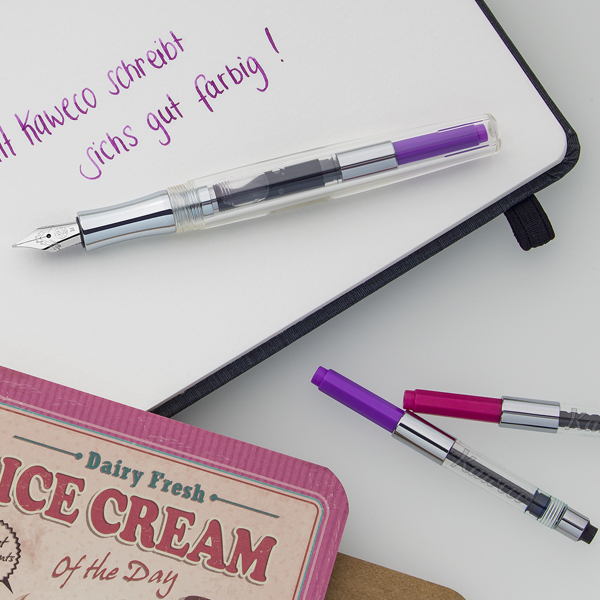 Kaweco schreibt
sichs gut farbig!
Dairy Fresh
ICE CREAM
Of the Day